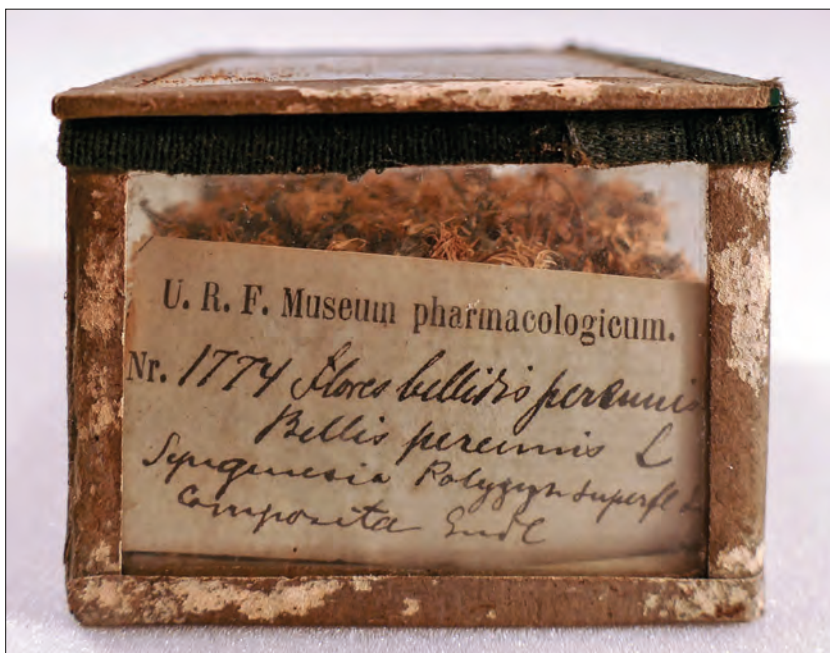 U. R. F. Museum pharmacologicum.
Nr. 1774 Flores bellidis perennis
Bellis perennis L
Syngenesia Polygyn superfl
Composita Endl